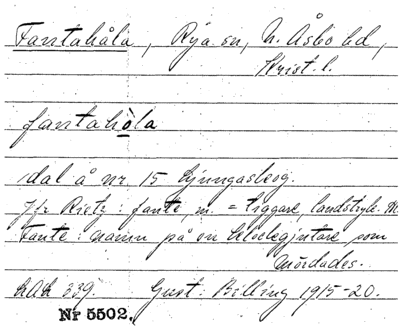 Fantahåla, Rya sn, N. Åsbo hd,
Krist. l.
fantahòla
dal å nr 15 Ljungaskog.
Jfr Rietz: fante, m. = tiggare, landstryk. M.
Fante: namn på en som
mördades.
HAK 339. Gust. Billing 1915-20.
Nr 5502.